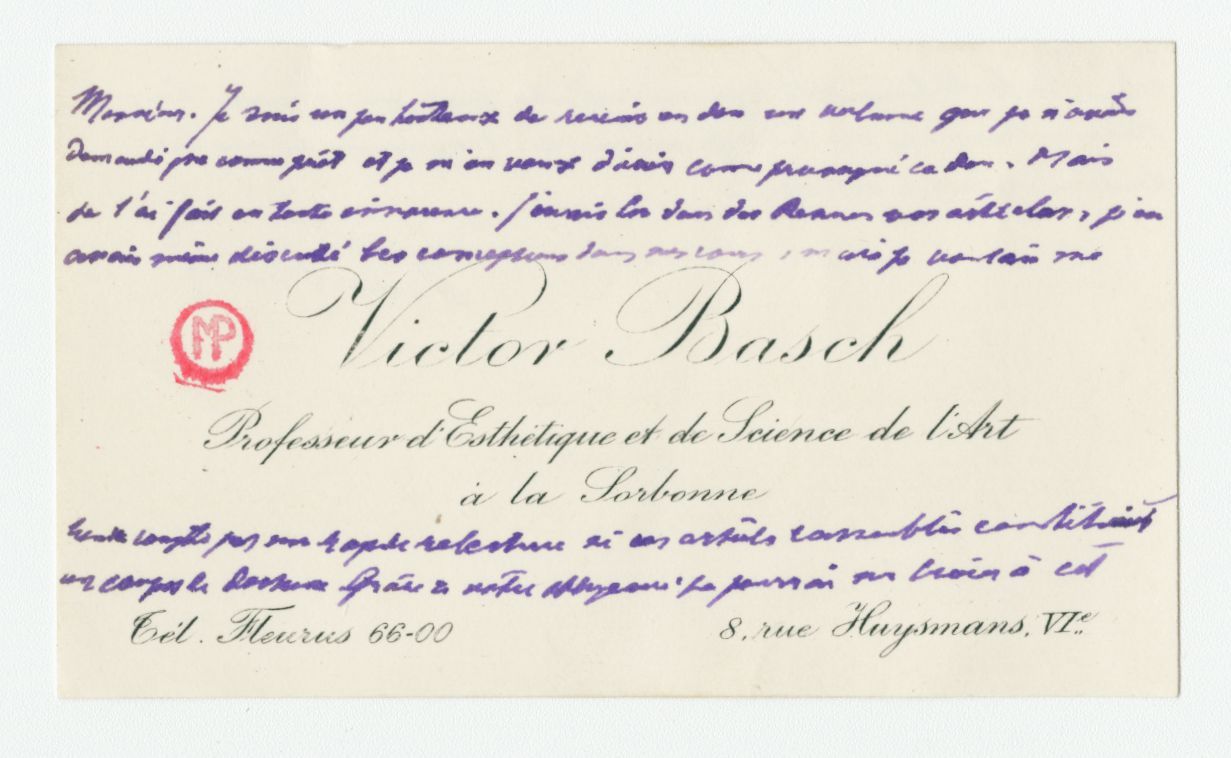 Monsieur. Je suis un peu honteux de recevoir en don un volume que je n'avais
demandé que comme prêt et je m'en veux d'avoir comme provoqué ce don. Mais
je l'ai fait en toute innocence. J'avais lu dans des Revues vos articles, j'en
avais même discuté les conceptions dans mes cours, mais je voulais me
MP
Victor Basch
Professeur d'Esthétique et de Science de l'Art
à la Sorbonne
rendre compte par une rapide relecture si ces articles rassemblés constituaient
un corps de doctrine Grâce à votre obligeance je pourrai me livrer à cet
Tél. Fleurus 66-00
8, rue Huysmans, VIe.